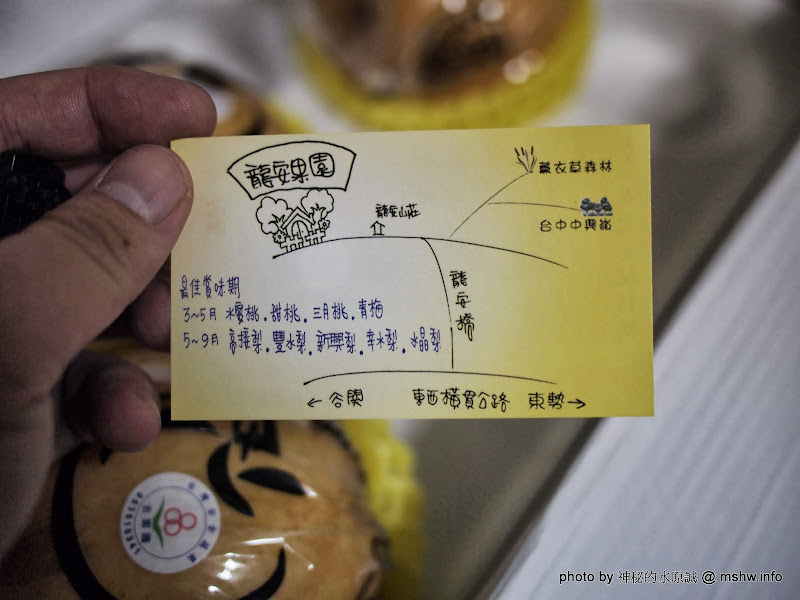 龍安果園
薰衣草森林
龍安山莊
台中中興嶺
龍安橋
最佳賞味期
3~5月 水蜜桃.甜桃.三月桃.青梅
5~9月 高接梨.豐水梨.新興梨.幸水梨.水晶梨
← 谷關 東西橫貫公路 東勢 →
photo by 神秘的水原誠 @ mshw.info